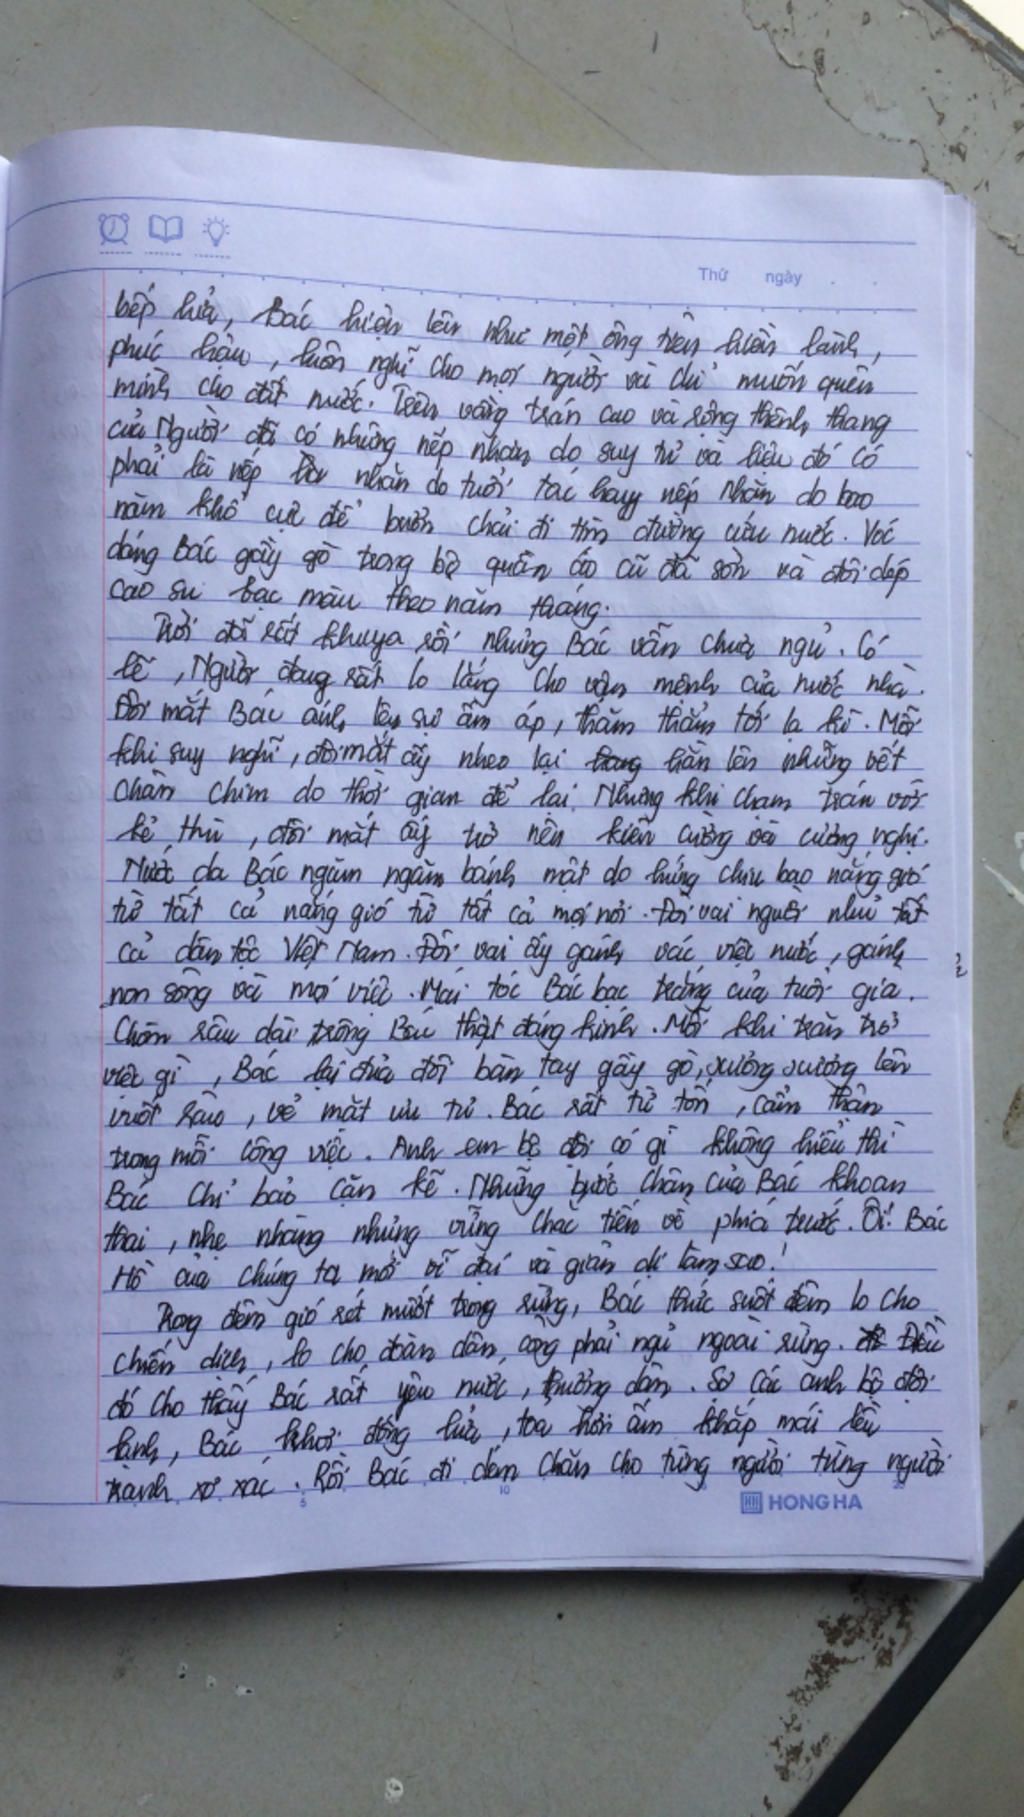 Thứ ngày
bếp lửa, Bác hiện lên như một ông tiên hiền lành,
phúc hậu, luôn nghĩ cho mọi người và chỉ muốn quên
mình cho đất nước. Trên vầng trán cao và rộng thênh thang
của Người đã có những nếp nhăn do suy tư và liệu đó có
phải là nếp nhăn do tuổi tác hay nếp nhăn do bao
năm khổ cực để buôn chải đi tìm đường cứu nước. Vóc
dáng Bác gầy gò trong bộ quần áo cũ đã sờn và đôi dép
cao su bạc màu theo năm tháng.
Trời đã rất khuya rồi nhưng Bác vẫn chưa ngủ. Có
lẽ, Người đang rất lo lắng cho vận mệnh của nước nhà.
Đôi mắt Bác ánh lên sự ấm áp, thăm thẳm tới lạ kì. Mỗi
khi suy nghĩ, đôi mắt ấy nheo lại hằn lên những vết
chân chim do thời gian để lại. Nhưng khi chạm trán với
kẻ thù, đôi mắt ấy trở nên kiên cường và cương nghị.
Nước da Bác ngăm ngăm bánh mật do hứng chịu bao nắng gió
từ tất cả nắng gió từ tất cả mọi nơi. Đôi vai người như tất
cả dân tộc Việt Nam. Đôi vai ấy gánh vác việc nước, gánh
non sông và mọi việc. Mái tóc Bác bạc trắng của tuổi già.
Chòm râu dài trông Bác thật đáng kính. Mỗi khi trăn trở
việc gì, Bác lại đưa đôi bàn tay gầy gò, xương xương lên
vuốt râu, vẻ mặt ưu tư. Bác rất từ tốn, cẩn thận
trong mỗi công việc. Anh em bộ đội có gì không hiểu thì
Bác chỉ bảo cặn kẽ. Những bước chân của Bác khoan
thai, nhẹ nhàng nhưng vững chắc tiến về phía trước. Ôi! Bác
Hồ của chúng ta mới vĩ đại và giản dị làm sao!
Trong đêm gió rét mướt trong rừng, Bác thức suốt đêm lo cho
chiến dịch, lo cho đoàn dân công phải ngủ ngoài rừng. Điều
đó cho thấy Bác rất yêu nước, thương dân. Sợ các anh bộ đội
lạnh, Bác khơi đống lửa, tỏa hơi ấm khắp mái lều
tranh xơ xác. Rồi Bác đi dém chăn cho từng người từng người
5 10 20
HONG HA